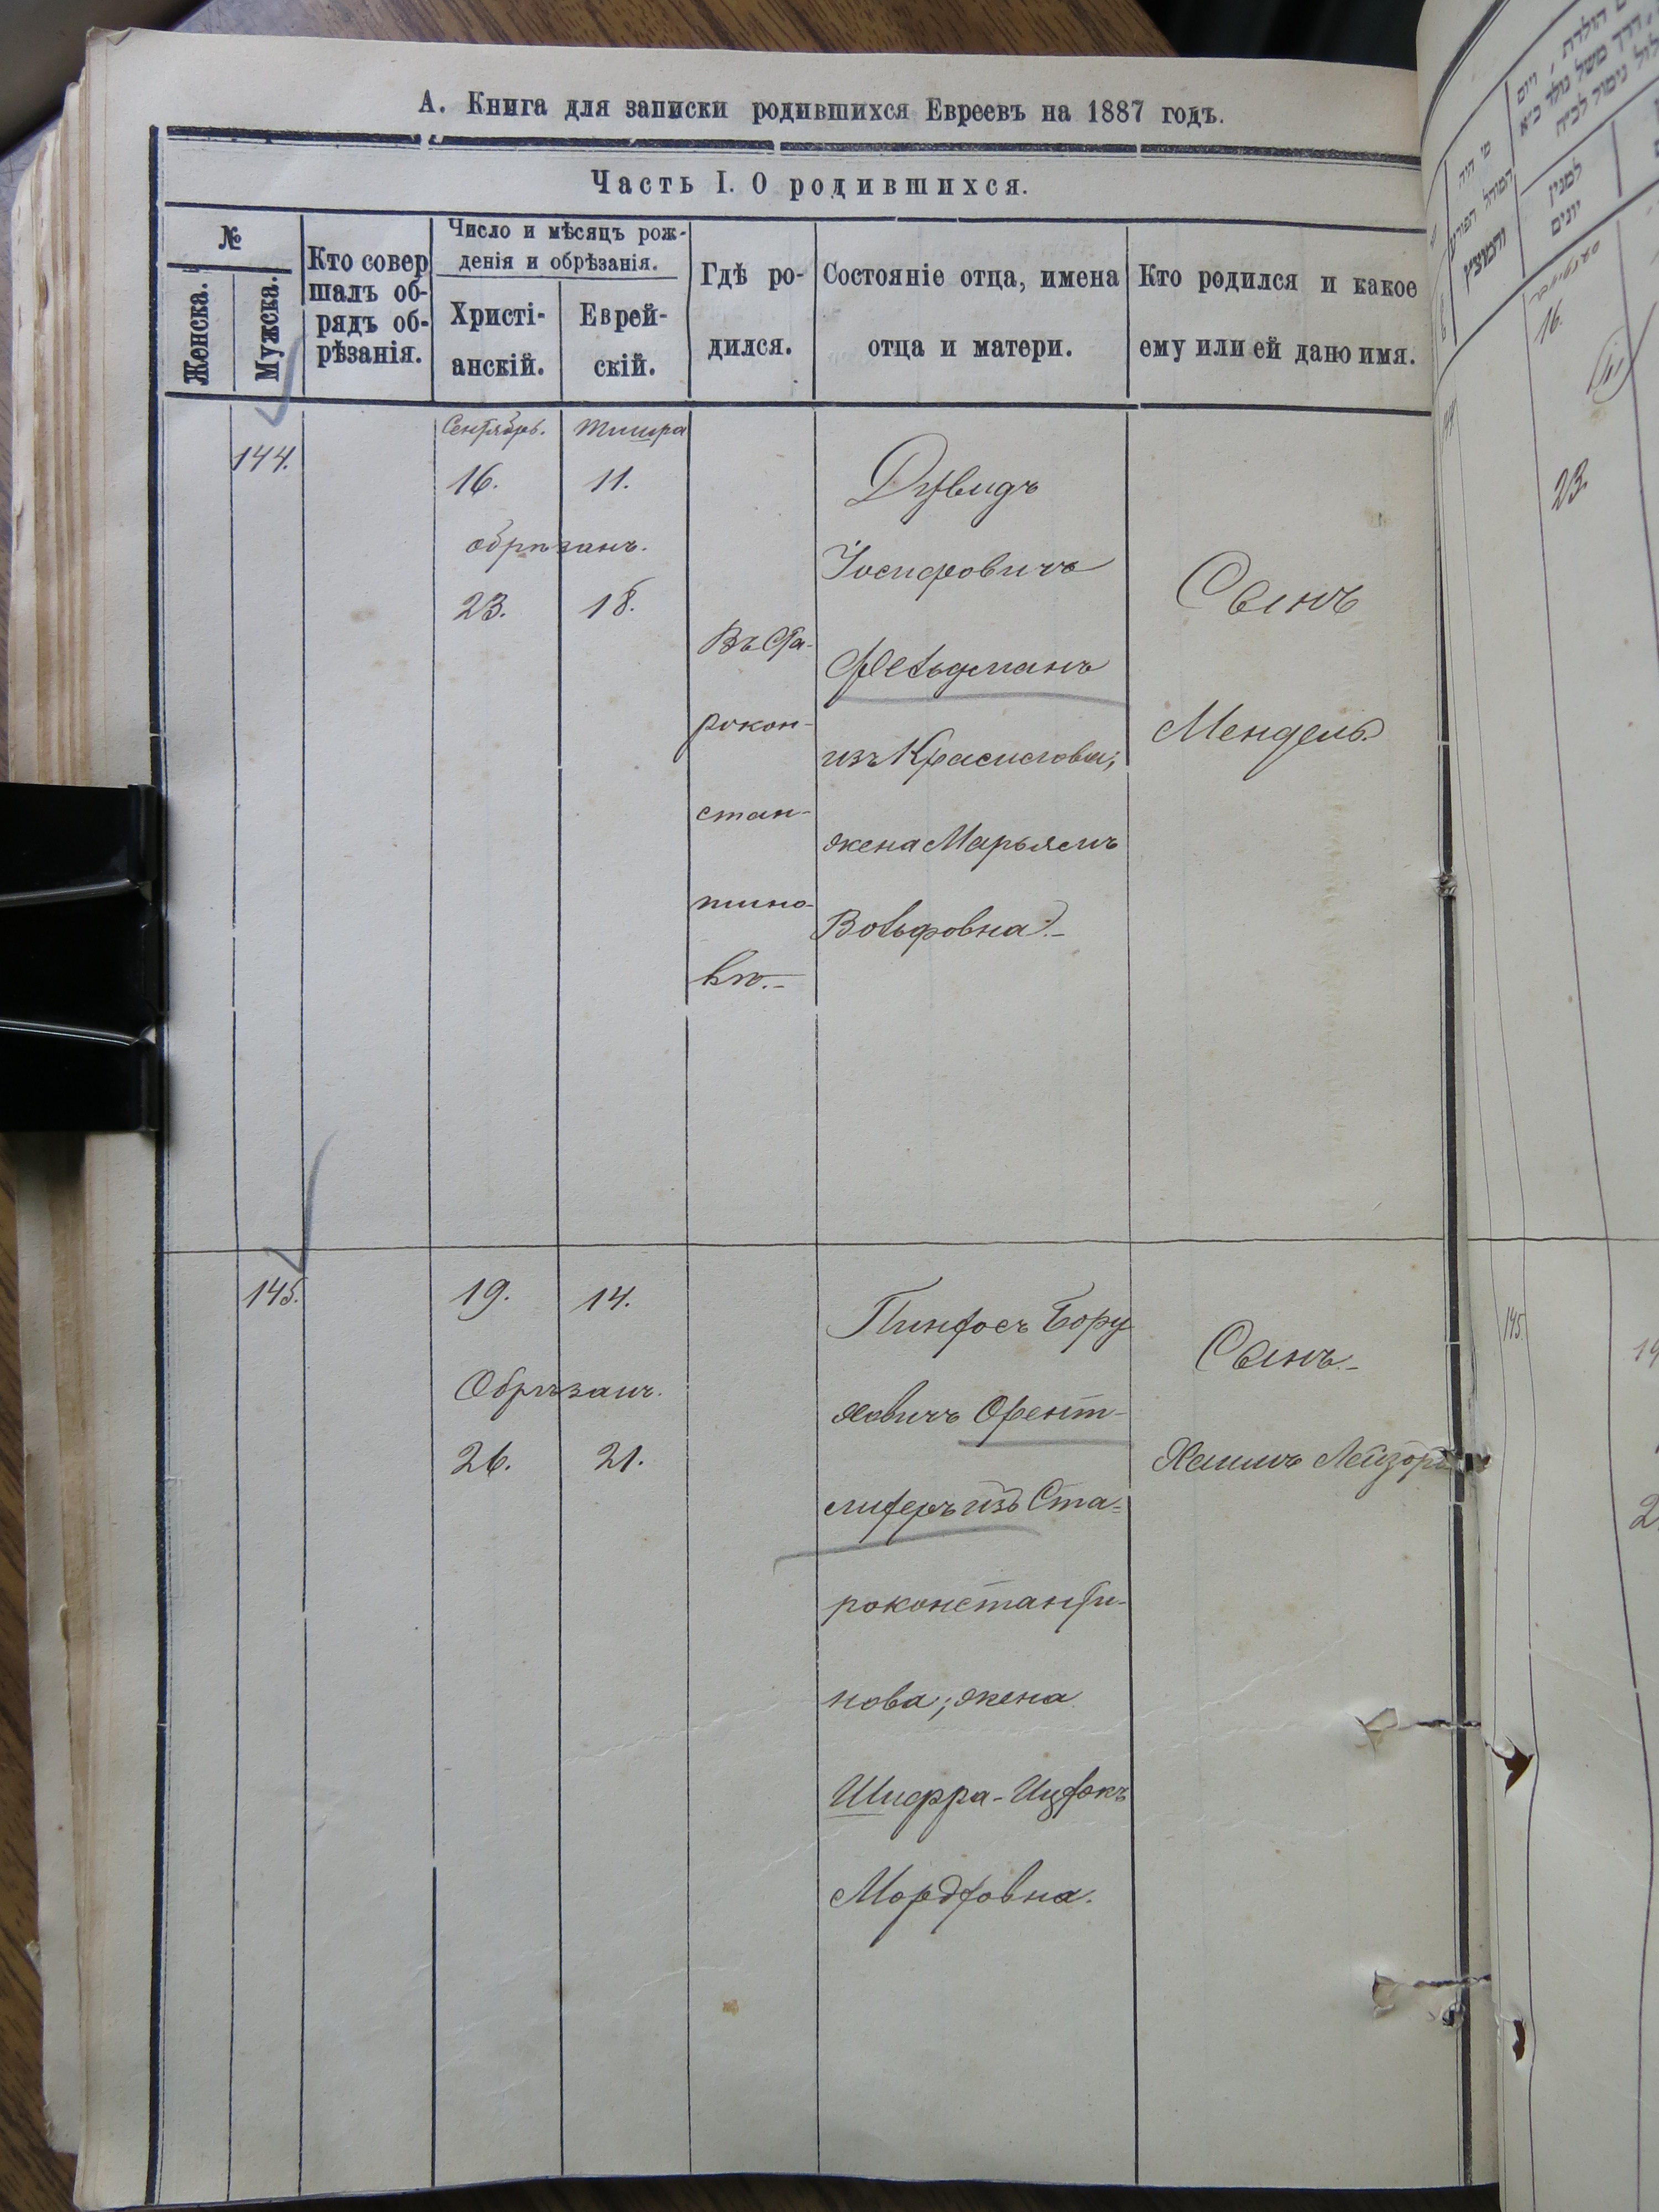 А. Книга для записки родившихся Евреевъ на 1887 годъ.
Часть I. О родившихся.
№
Женска.
Мужска.
Кто совер
шалъ об-
рядъ об-
рѣзанія.
Число и мѣсяцъ рож-
денія и обрѣзанія.
Христі-
анскій.
Еврей-
скій.
Гдѣ ро-
дился.
Состояніе отца, имена
отца и матери.
Кто родился и какое
ему или ей дано имя.
144.
Сентябрь.
Тишра
16.
11.
обрѣзанъ.
23.
18.
Въ Ста-
рокон-
стан-
тино-
вѣ.-
Дувидъ
Іосифовичъ
Фельдманъ
изъ Красилова;
жена Марьямъ
Вольфовна.-
Сынъ
Мендель
145.
19.
14.
Обрѣзанъ.
26.
21.
Пинхосъ Бору
ховичъ Орент-
лихеръ изъ Ста-
роконстанти-
нова; жена
Шифра-
Мордховна.
Сынъ.-
Хаимъ Лейзоръ
16.
23.
145.